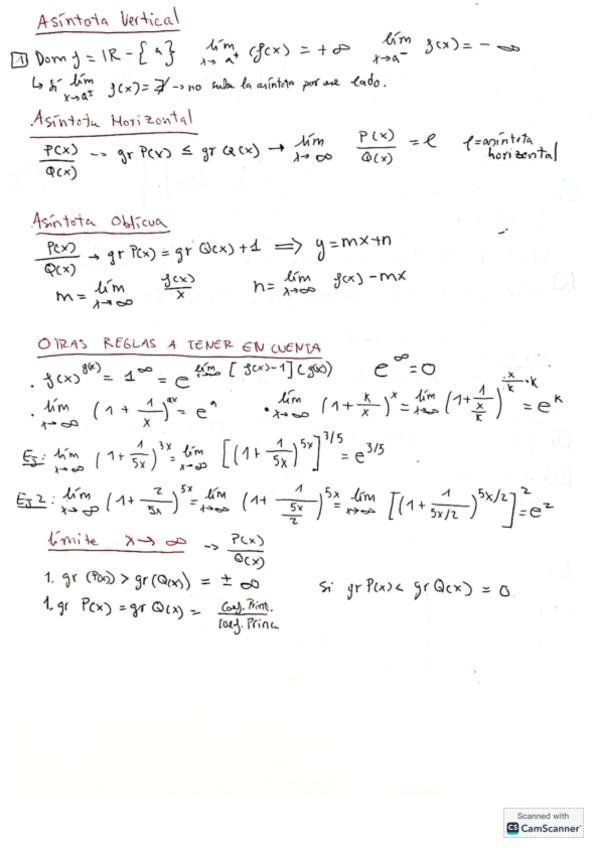 Asíntota Vertical
1 Dom f = IR - { a } lim x→a⁺ f(x) = + ∞ lim x→a⁻ f(x) = - ∞
↳ Si lim x→a± f(x) = ∄ → no sube la asíntota por ese lado.
Asíntota Horizontal
P(x)/Q(x) → gr P(x) ≤ gr Q(x) → lim x→∞ P(x)/Q(x) = l l = asíntota horizontal
Asíntota Oblicua
P(x)/Q(x) → gr P(x) = gr Q(x) + 1 ⟹ y = mx+n
m = lim x→∞ f(x)/x n = lim x→∞ f(x) - mx
OTRAS REGLAS A TENER EN CUENTA
· f(x)^g(x) = 1^∞ = e^lim [f(x)-1](g(x)) e^∞ = 0
· lim x→∞ (1 + 1/x)^ax = e^a · lim x→∞ (1 + k/x)^x = lim x→∞ (1 + 1/(x/k))^(x/k · k) = e^k
Ej: lim x→∞ (1 + 1/5x)^3x = lim x→∞ [(1 + 1/5x)^5x]^3/5 = e^3/5
Ej 2: lim x→∞ (1 + 2/5x)^5x = lim x→∞ (1 + 1/(5x/2))^5x = lim x→∞ [(1 + 1/(5x/2))^5x/2]^2 = e^2
límite x→∞ → P(x)/Q(x)
1. gr (P(x)) > gr (Q(x)) = ± ∞ Si gr P(x) < gr Q(x) = 0.
1. gr P(x) = gr Q(x) = Coef. Prin./Coef. Princ
Scanned with
CS CamScanner